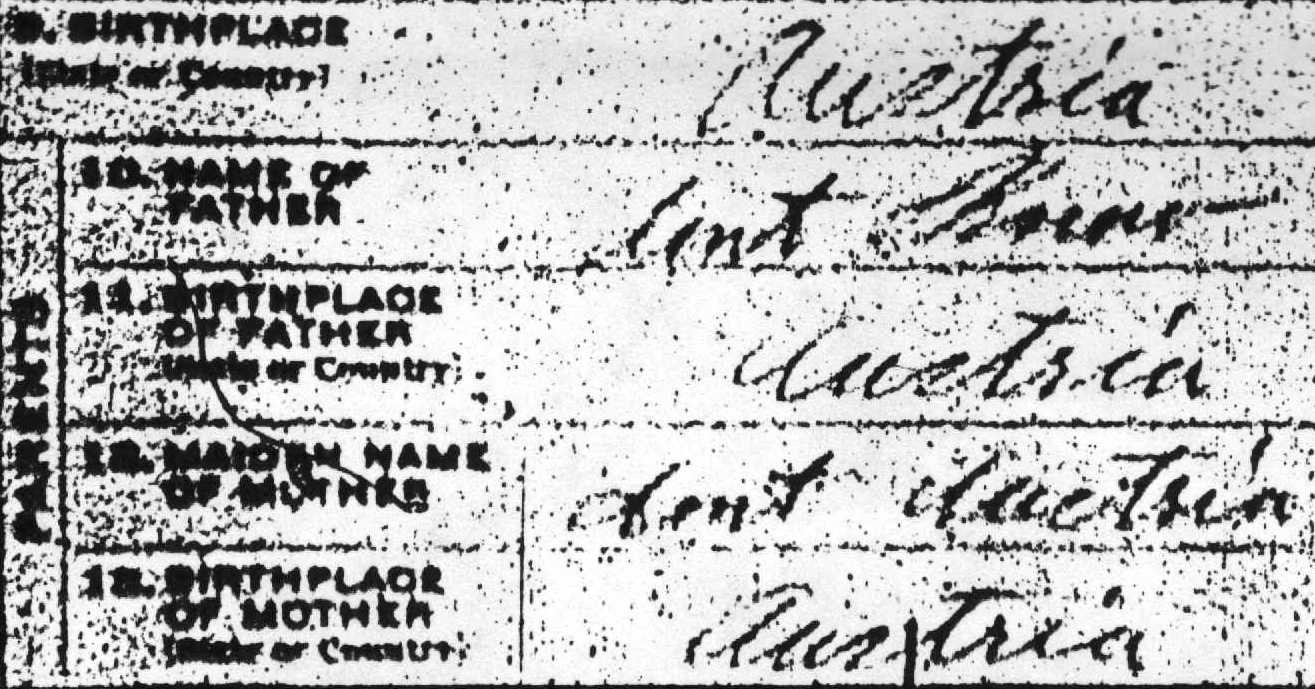 9. BIRTHPLACE
(State or Country)
Austria
10. NAME OF
FATHER
PARENTS
11. BIRTHPLACE
OF FATHER
(State or Country)
Austria
12. MAIDEN NAME
OF MOTHER
Austria
13. BIRTHPLACE
OF MOTHER
(State or Country)
Austria